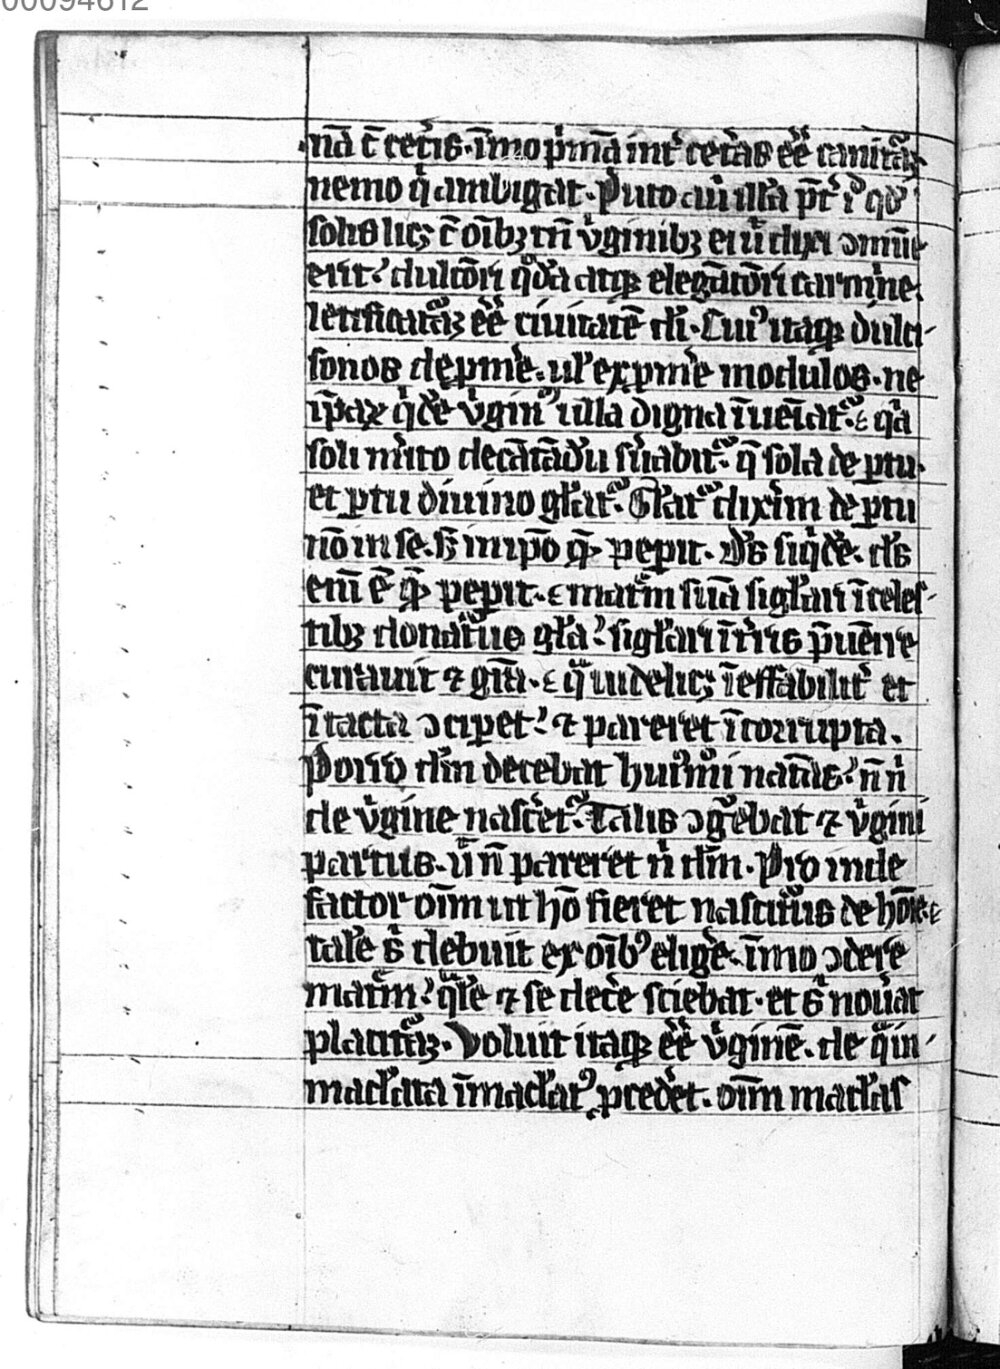 00094612
nā c̄ cet̄is. īmo p̄mā int̉ cet̉as eē canitaꝝ
nemo q̉ ambigat. Puto aū illā p̄t̉ id qd̉
solis licꝫ c̄ oībꝫ tn̄ v̉ginibꝫ ei ū dixi ↄmūe
erit? dulcōri q̉dā atqꝫ elegātōri carmine
letificatāꝝ eē ciuitatē di̅. Cui9 itaqꝫ dulci
sonos dep̱mē. ul̉ exp̱mē modulos. ne
ip̄aꝝ q̉dē v̉ginū ulla digna īueīat᷑. ⁊ q̉a
soli m̉ito decātādū s̉uabit᷑. q̄ sola de p̱tu.
et p̱tu diuino gl̉at᷑. Gl̉at᷑ dixerim de p̱tu
nō in se. s̄ in ip̄o quē pep̱it. Ds̄ siq̉dē. ds̄
eni̅ ē quē pep̱it. ⁊ mat̉m suā sigl̉ari ī celes
tibꝫ donat̉us gl̉a? sigl̉ari ī t̉ris p̄uēire
curauit ⁊ gr̄a. ⁊ q̉ uidelicꝫ īeffabilit̉ et
ītacta ↄcip̱et? ⁊ pareret īcorrupta.
Porro dm̄ decebat hui9m̉oi natiuitas? nō nisi
de v̉gine nascēt᷑. Talis ↄg̉ebat ⁊ v̉gini
partus. ut nō pareret n̉ dm̄. Pro inde
factor oīm ut hō fieret nascit̉us de hōīe. ⁊
talē s̉ debuit ex oīb9 elig̉e. īmo ↄdere
mat̉m? q̉lē ⁊ se dec̉e sciebat. et s̉ noủat
placit̉aꝝ. Voluit itaqꝫ eē v̉ginē. de q̉ in
macl̉ata īmacl̉at9 p̱ced̉et. oīm macl̉as